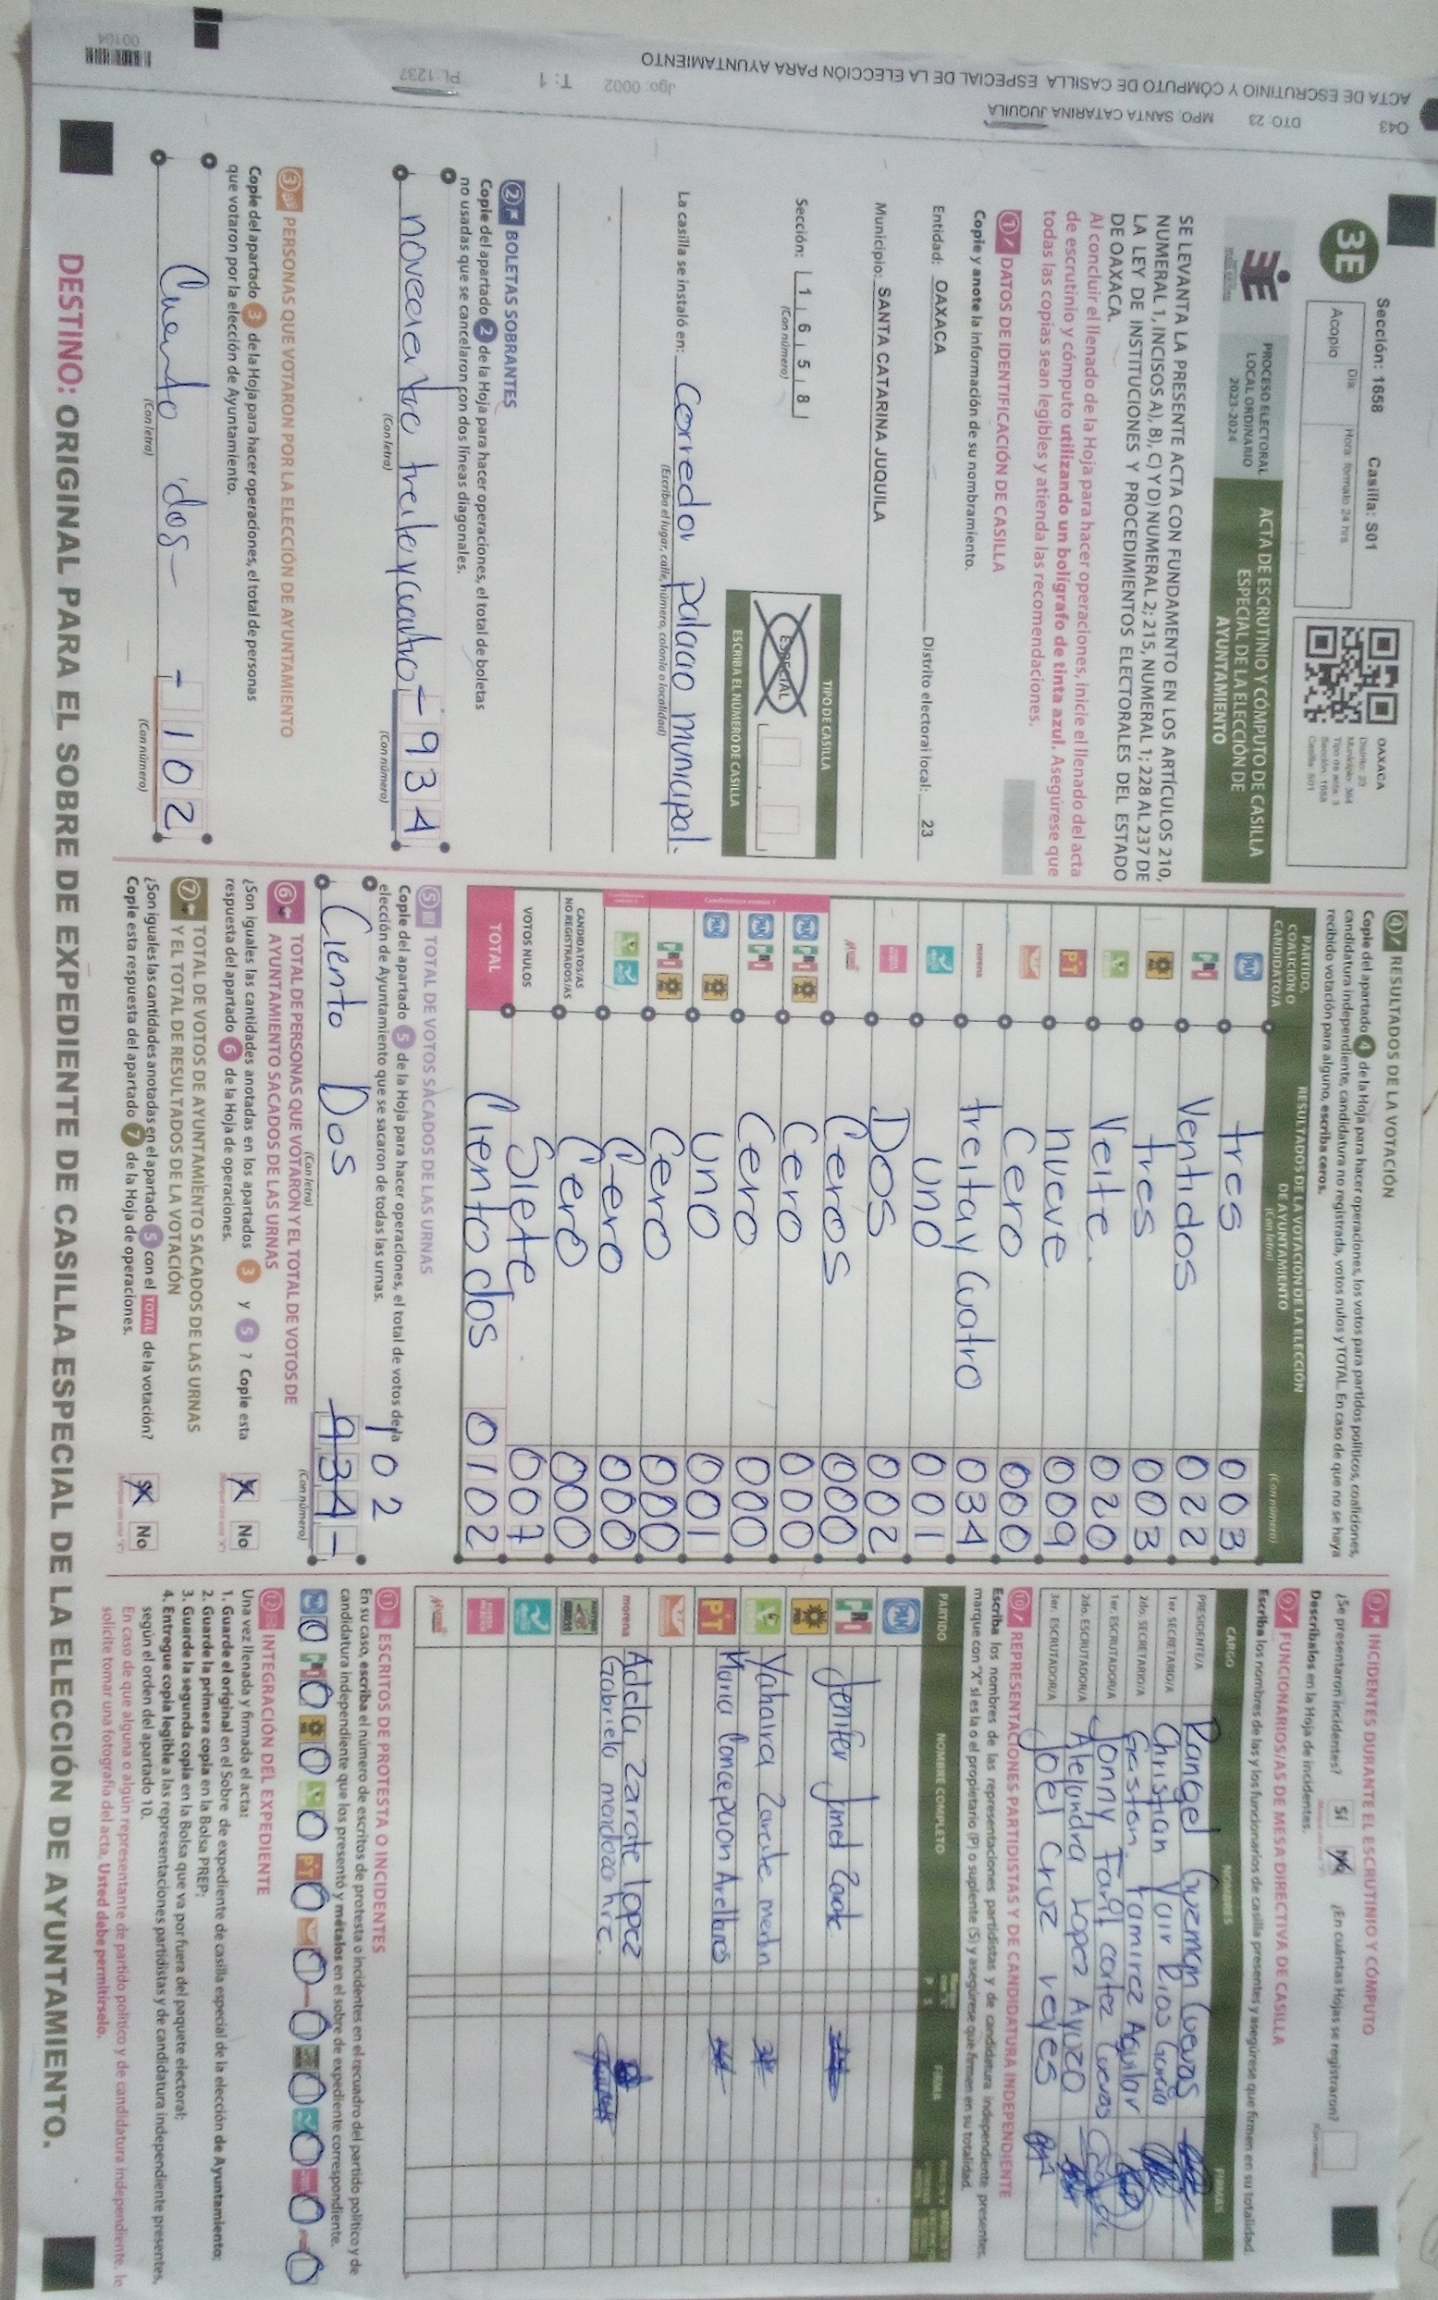 ACTA DE ESCRUTINIO Y CÓMPUTO DE CASILLA ESPECIAL DE LA ELECCIÓN PARA AYUNTAMIENTO
043 DTO: 23 MPO: SANTA CATARINA JUQUILA Jgo: 0002 T: 1 PL: 1237
00104
Sección: 1658 Casilla: S01
3E
Acopio
Día:
Hora: formato 24 hrs
OAXACA
Distrito: 23
Sección: 1658
Casilla: S01
PROCESO ELECTORAL
LOCAL ORDINARIO
2023-2024
ACTA DE ESCRUTINIO Y CÓMPUTO DE CASILLA
ESPECIAL DE LA ELECCIÓN DE
AYUNTAMIENTO
SE LEVANTA LA PRESENTE ACTA CON FUNDAMENTO EN LOS ARTÍCULOS 210,
NUMERAL 1, INCISOS A), B), C) Y D) NUMERAL 2; 215, NUMERAL 1; 228 AL 237 DE
LA LEY DE INSTITUCIONES Y PROCEDIMIENTOS ELECTORALES DEL ESTADO
DE OAXACA.
Al concluir el llenado de la Hoja para hacer operaciones, inicie el llenado del acta
de escrutinio y cómputo utilizando un bolígrafo de tinta azul. Asegúrese que
todas las copias sean legibles y atienda las recomendaciones.
1 DATOS DE IDENTIFICACIÓN DE CASILLA
Copie y anote la información de su nombramiento.
Entidad: OAXACA Distrito electoral local: 23
Municipio: SANTA CATARINA JUQUILA
Sección: 1 6 5 8
(Con número)
TIPO DE CASILLA
ESPECIAL
ESCRIBA EL NÚMERO DE CASILLA
La casilla se instaló en: Corredor palacio municipal.
(Escriba el lugar, calle, número, colonia o localidad)
2 BOLETAS SOBRANTES
Copie del apartado 2 de la Hoja para hacer operaciones, el total de boletas
no usadas que se cancelaron con dos líneas diagonales.
934
(Con letra) (Con número)
3 PERSONAS QUE VOTARON POR LA ELECCIÓN DE AYUNTAMIENTO
Copie del apartado 3 de la Hoja para hacer operaciones, el total de personas
que votaron por la elección de Ayuntamiento.
dos - - 102
(Con letra) (Con número)
4 RESULTADOS DE LA VOTACIÓN
Copie del apartado 4 de la Hoja para hacer operaciones, los votos para partidos políticos, coaliciones,
candidatura independiente, candidatura no registrada, votos nulos y TOTAL. En caso de que no se haya
recibido votación para alguno, escriba ceros.
PARTIDO,
COALICIÓN O
CANDIDATO/A
RESULTADOS DE LA VOTACIÓN DE LA ELECCIÓN
DE AYUNTAMIENTO
(Con letra) (Con número)
PAN tres 003
PRI Ventidos 022
tres 003
Veite. 020
PT nueve 009
Cero 000
morena treitay Cuatro 034
uno 001
Dos 002
Ceros 000
PAN PRI Cero 000
PAN PRI Cero 000
PAN uno 001
PRI Cero 000
Cero 000
CANDIDATOS/AS
NO REGISTRADOS/AS Cero 000
VOTOS NULOS Siete 007
TOTAL Ciento dos 0102
5 TOTAL DE VOTOS SACADOS DE LAS URNAS
Copie del apartado 5 de la Hoja para hacer operaciones, el total de votos de la
elección de Ayuntamiento que se sacaron de todas las urnas.
102
Ciento Dos 934
(Con letra) (Con número)
6 TOTAL DE PERSONAS QUE VOTARON Y EL TOTAL DE VOTOS DE
AYUNTAMIENTO SACADOS DE LAS URNAS
¿Son iguales las cantidades anotadas en los apartados 3 y 5 ? Copie esta
respuesta del apartado 6 de la Hoja de operaciones.
No
7 TOTAL DE VOTOS DE AYUNTAMIENTO SACADOS DE LAS URNAS
Y EL TOTAL DE RESULTADOS DE LA VOTACIÓN
¿Son iguales las cantidades anotadas en el apartado 5 con el TOTAL de la votación?
Copie esta respuesta del apartado 7 de la Hoja de operaciones.
No
INCIDENTES DURANTE EL ESCRUTINIO Y CÓMPUTO
¿Se presentaron incidentes? SÍ No ¿En cuántas Hojas se registraron?
Descríbalos en la Hoja de incidentes.
9 FUNCIONARIOS/AS DE MESA DIRECTIVA DE CASILLA
Escriba los nombres de las y los funcionarios de casilla presentes y asegúrese que firmen en su totalidad.
CARGO NOMBRES FIRMAS
PRESIDENTE/A Rangel Guzman Cuevas
1er SECRETARIO/A Christian Yair Rios Garcia
2do. SECRETARIO/A Gaston Ramirez Aguilar
1er. ESCRUTADOR/A Jonny Fary cortez Cuevas
2do. ESCRUTADOR/A Alejandra Lopez Ayuzo
3er. ESCRUTADOR/A Joel Cruz reyes
10 REPRESENTACIONES PARTIDISTAS Y DE CANDIDATURA INDEPENDIENTE
Escriba los nombres de las representaciones partidistas y de candidatura independiente presentes,
marque con "X" si es la o el propietario (P) o suplente (S) y asegúrese que firmen en su totalidad.
PARTIDO NOMBRE COMPLETO P S FIRMA
PAN
PRI Jenifer
Yahaira
PT Maria Concepcion Arellanes
morena Adela Zarate lopez
Gabriela
11 ESCRITOS DE PROTESTA O INCIDENTES
En su caso, escriba el número de escritos de protesta o incidentes en el recuadro del partido político y de
candidatura independiente que los presentó y métalos en el sobre de expediente correspondiente.
12 INTEGRACIÓN DEL EXPEDIENTE
Una vez llenada y firmada el acta:
1. Guarde el original en el Sobre de expediente de casilla especial de la elección de Ayuntamiento;
2. Guarde la primera copia en la Bolsa PREP;
3. Guarde la segunda copia en la Bolsa que va por fuera del paquete electoral;
4. Entregue copia legible a las representaciones partidistas y de candidatura independiente presentes,
según el orden del apartado 10.
En caso de que alguna o algún representante de partido político y de candidatura independiente, le
solicite tomar una fotografía del acta, Usted debe permitírselo.
DESTINO: ORIGINAL PARA EL SOBRE DE EXPEDIENTE DE CASILLA ESPECIAL DE LA ELECCIÓN DE AYUNTAMIENTO.